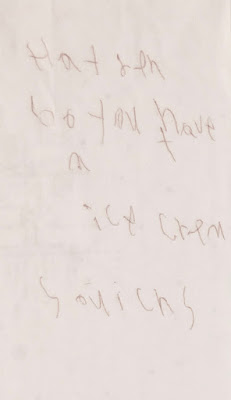 Hat sen
Do you have
a
ice crem
Souichs